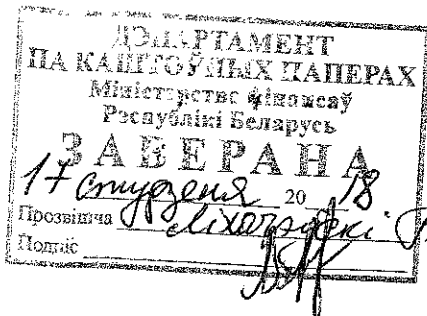 ДЭПАРТАМЕНТ
ПА КАШТОЎНЫХ ПАПЕРАХ
Міністэрства фінансаў
Рэспублікі Беларусь
ЗАВЕРАНА
17 студзеня 2018
Прозвішча
Подпіс